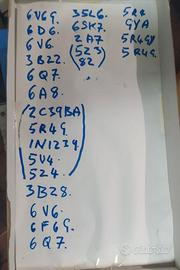 6V6G.
6D6.
6V6.
3B22.
6Q7.
6A8.
2C39BA
5R4G.
1N1239
5V4.
5Z4.
3B28.
6V6.
6F6G.
6Q7.
35L6.
6SK7.
2A7
(523)
82
5R4
GYA
5R4GY
5R4G.
subito